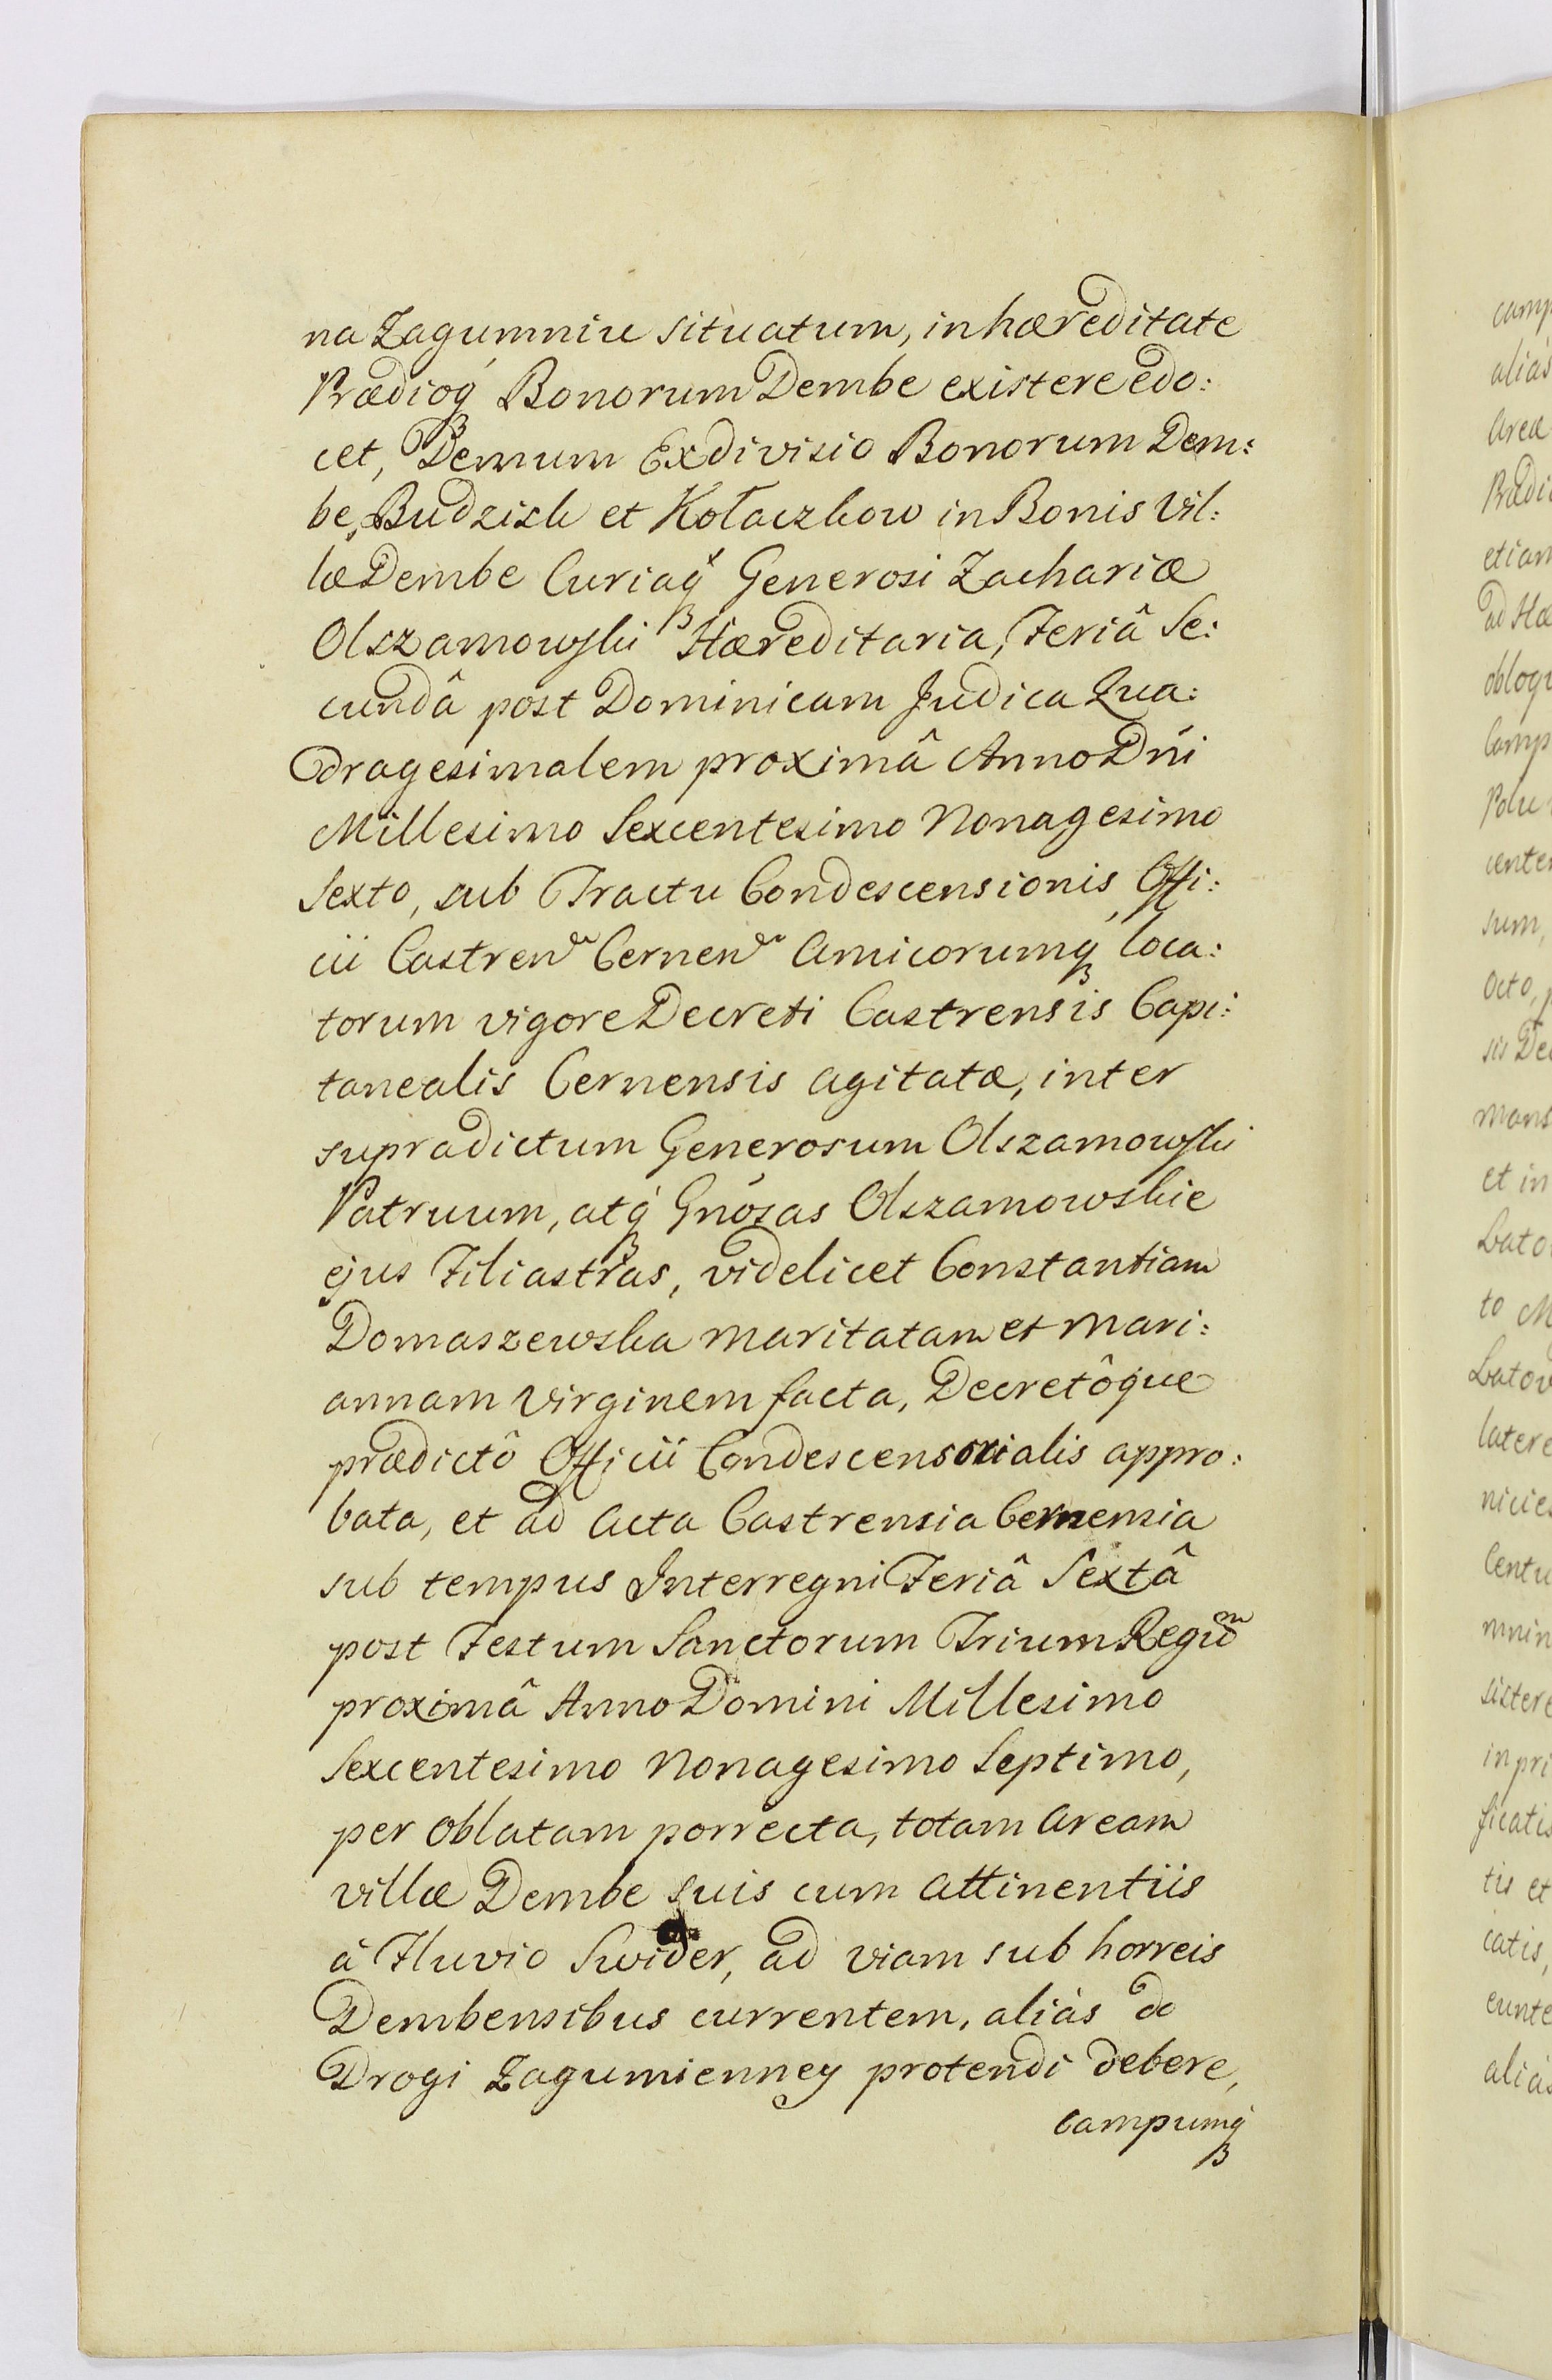 na Zagumniu situatum, in hæreditate
Prædioq́ꝫ Bonorum Dembe existere edo:
cet, Demum Exdivisio Bonorum Dem:
be, Budzisk et Kołaczkow in Bonis Vil:
læ Dembe Curiaq́ꝫ Generosi Zachariæ
Olszamowski Hæreditaria, Feriâ Se:
cundâ post Dominicam Judica Qua:
dragesimalem proximâ Anno Dńi
Millesimo Sexcentesimo Nonagesimo
Sexto, sub Tractu Condescensionis, Offi:
cii Castren̄ Cernen̄ Amicorumq́ꝫ loca:
torum vigore Decreti Castrensis Capi:
tanealis Cernensis agitatæ, inter
supradictum Generosum Olszamowski
Patruum, atq́ꝫ Gńosas Olszamowskie
ejus Filiastras, videlicet Constantiam
Domaszewska maritatam et Mari:
annam Virginem facta, Decretôque
prædictô Officii Condescensorialis appro:
bata, et ad Acta Castrensia Cernensia
sub tempus Interregni Feriâ Sextâ
post Festum Sanctorum Trium Regum̄
proximâ Anno Domini Millesimo
Sexcentesimo Nonagesimo Septimo,
per Oblatam porrecta, totam Aream
villæ Dembe suis cum Attinentiis
à Fluvio Swider, ad viam sub horreis
Dembensibus currentem, aliàs do
Drogi Zagumienney protendi debere,
campumq́ꝫ